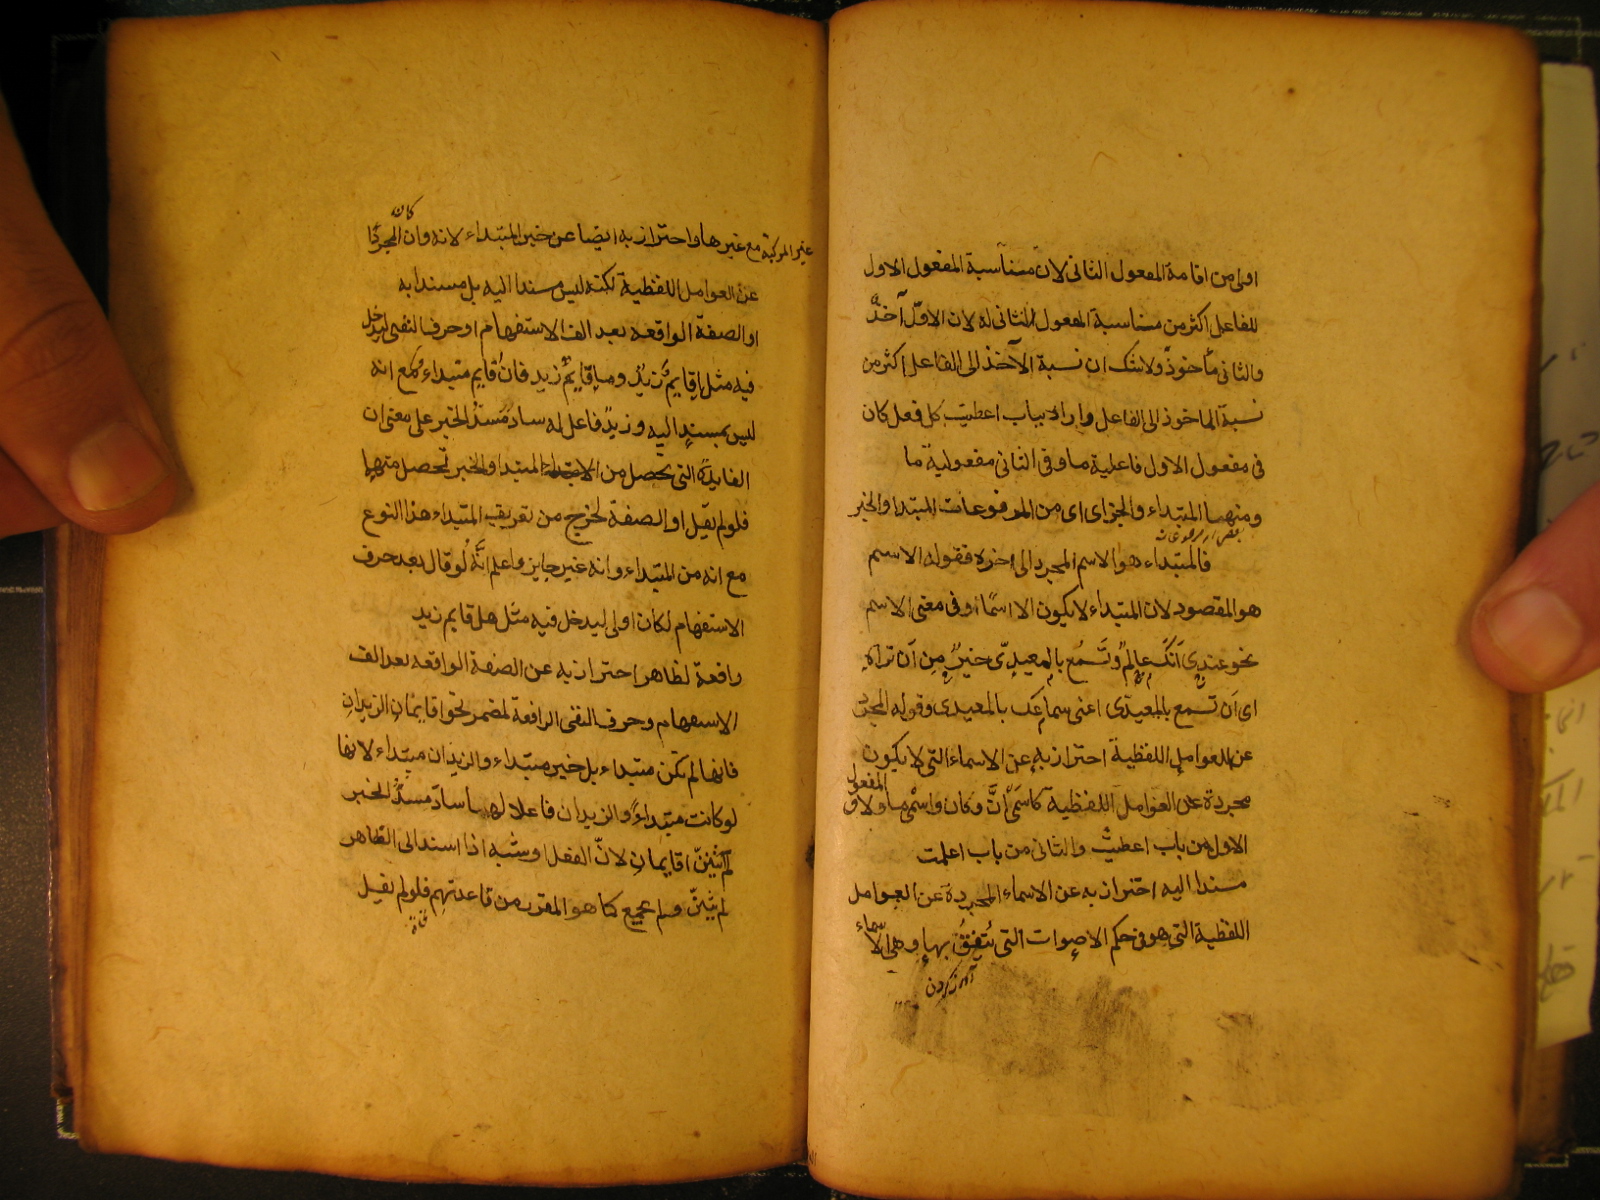 اولى من اقامة المفعول الثانى لان مناسبة المفعول الاول
للفاعل اكثر من مناسبة المفعول الثانى له لان الاوّل آخذٌ
والثانى مأخوذٌ ولا شك ان نسبة الآخذ الى الفاعل اكثر من
نسبة الماخوذ الى الفاعل واراد بباب اعطيت كل فعل كان
فى مفعول الاول فاعلية ما وفى الثانى مفعولية ما
ومنهما المبتداء والخبر اى من المرفوعات المبتدا والخبر
فالمبتداء هو الاسم المجرد الى اخره فقوله الاسم
هو المقصود لان المبتداء لا يكون الا اسمًا او فى معنى الاسم
نحو عندى اَنَّكَ عالِمٌ وتَسْمَع بالمعيدِىّ خيرٌ مِن اَن تراه
اى اَن تسمع بالمعيدّى اعنى سماعك بالمعيدى وقوله المجرّد
عن العوامل اللفظية احتراز به عن الاسماء التى لا يكون
مجردة عن العوامل اللفظية كاسمَىْ اِنَّ وكان واسْمى ما ولا و المفعول
الاول من باب اعطيتُ والثانى من باب اعلمت
مسندا اليه احتراز به عن الاسماء المجردة عن العوامل
اللفظية التى هو فى حكم الاصوات التى يُنعَقُ بها وهى الاسماء
آواز كردن
غير المركبة مع غيرها واحتراز به ايضا عن خبر المبتداء لانه وان كان المجردًا
عن العوامل اللفظية لكنه ليس مسندا اليه بل مسندا به
او الصفة الواقعه بعد الف الاستفهام او حرف النفى ليدخل
فيه مثل اقايمٌ زيدٌ وما قايمٌ زيد فانّ قايم مبتداء مع انه
ليس بمسندٍ اليه وزيدٌ فاعل له سادّ مَسَدَّ الخبر على معنى ان
الفايدة التى تحصل من المبتدا والخبر تحصل منهما
فلو لم يقيل او الصفة لخرج من تعريف المبتداء هذا النوع
مع انه من المبتداء وانه غير جايز واعلم انَّهُ لو قال بعد حرف
الاستفهام لكان اولى ليدخل فيه مثل هل قايم زيد
رافعة لظاهر احتراز به عن الصفة الواقعه بعد الف
الاستفهام وحرف النفى الرافعة لمضمر نحو اقايمانِ الزيدانِ
فانها لم تكن مبتداء بل خبر مبتداء والزيدان مبتداء لانها
لو كانت مبتداءً والزيدان فاعلا لها سادّ مسدّ الخبر
لم يُثَنَّ اقايمان لانّ الفعل او شبه اذا اسند الى الظاهر
لم يُثَنَّ ولم يجمع كما هو المقرر من قاعدتهم فلو لم يقيل